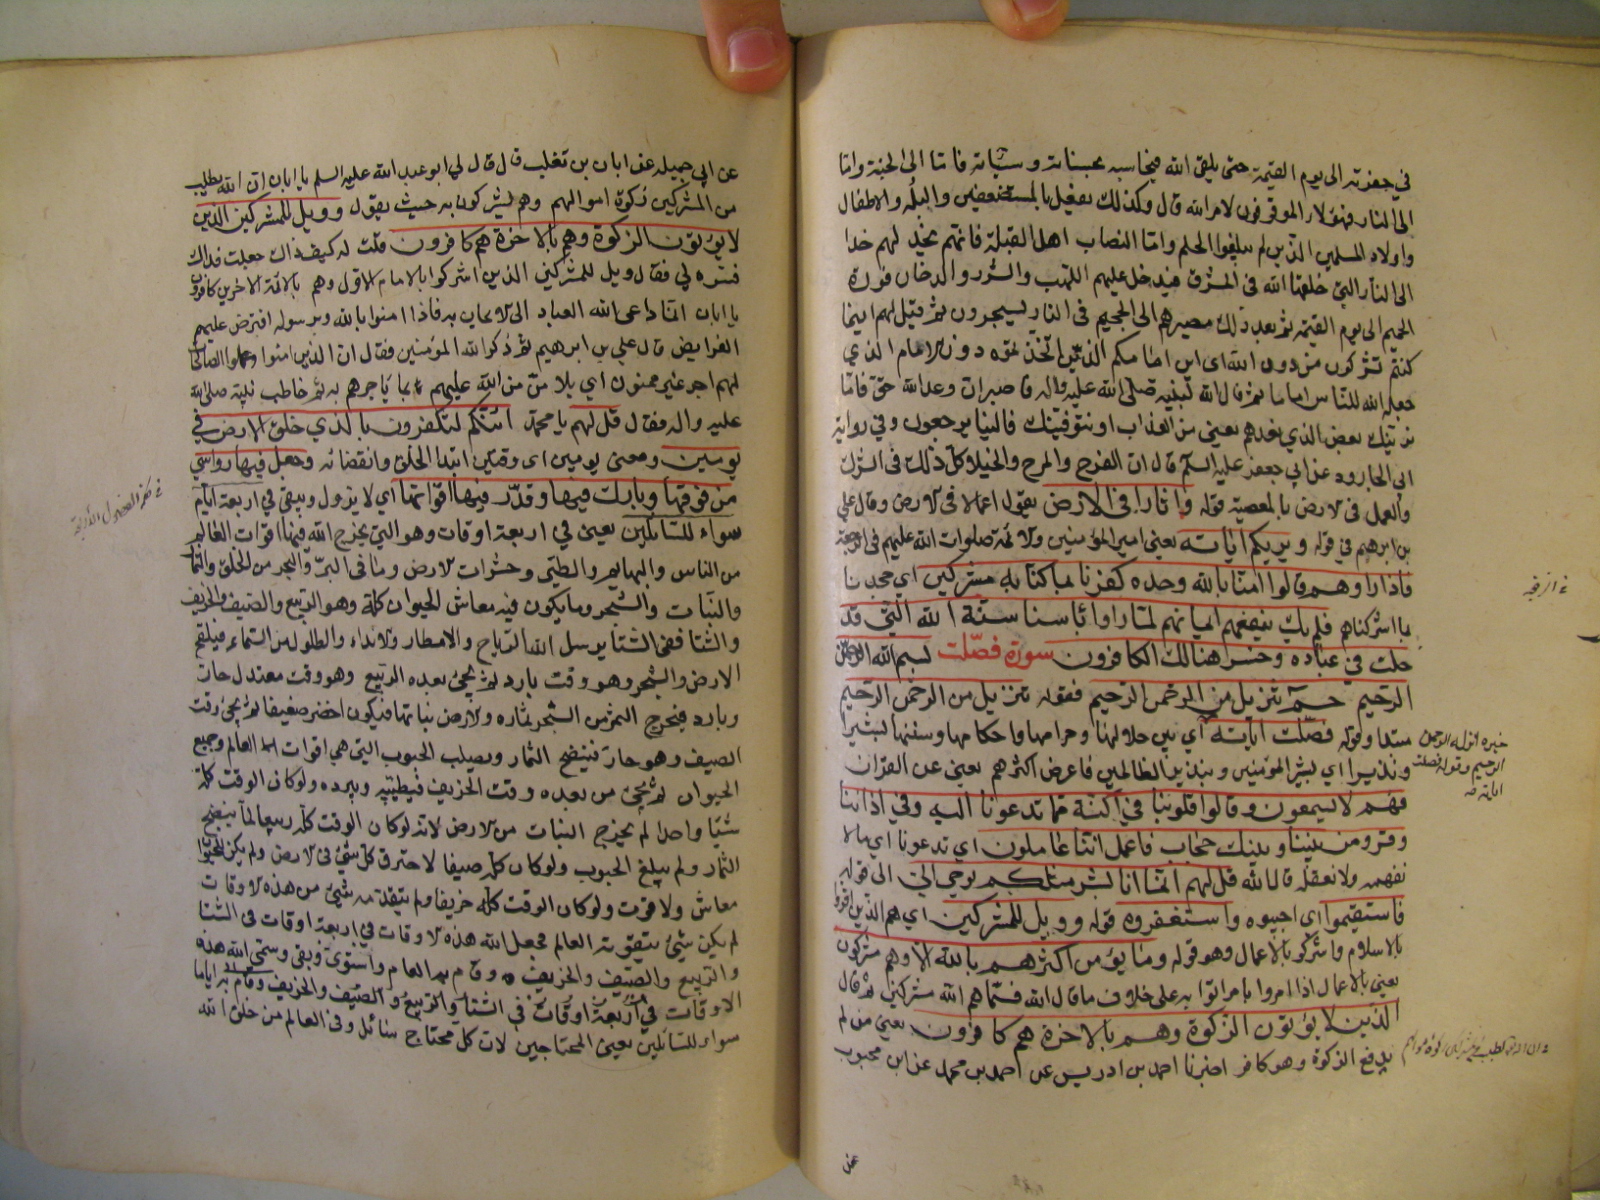 في حفرته الى يوم القيمة حتى يلقى الله فيحاسبه بحسناته و سيآته فاما الى الجنة واما
الى النار فهؤلاء الموقوفون لامر الله قال وكذلك يفعل بالمستضعفين والبله والاطفال
واولاد المسلمين الذين لم يبلغوا الحلم واما النصاب اهل القبلة فانهم يخد لهم خدا
الى النار التي خلقها الله فى المشرق فيدخل عليهم اللهب والشرر والدخان فورة
الحميم الى يوم القيمة ثم بعد ذلك مصيرهم الى الجحيم فى النار يسجرون ثم قيل لهم اينما
كنتم تشركون من دون الله اى اين امامكم الذى اتخذتموه دون الامام الذي
جعله الله للناس اماما ثم قال الله لنبيه صلى الله عليه واله فاصبر ان وعد الله حق فاما
نرينك بعض الذي نعدهم يعني من العذاب او نتوفينك فالينا يرجعون وفي رواية
ابى الجارود عن ابي جعفر عليه السلم قال ان الفرح والمرح والخيلا كل ذلك فى الشرك
والعمل فى الارض بالمعصية قوله واثارا فى الارض يقول اعمالا فى الارض وقال علي
بن ابرهيم في قوله ويريكم اياته يعني امير المؤمنين والائمة صلوات الله عليهم فى الرجعة
فاذا راوهم قالوا امنا بالله وحده وكفرنا بما كنا به مشركين اي جحدنا
بما اشركناهم فلم يك ينفعهم ايمانهم لما راوا باسنا سنة الله التي قد
خلت في عباده وخسر هنالك الكافرون سورة فصّلت بسم الله الرحمن
الرحيم حم تنزيل من الرحمن الرحيم فقوله تنزيل من الرحمن الرحيم
مبتدا وقوله فصّلت اياته اي بين حلالها وحرامها واحكامها وسننها بشيرا
ونذيرا اي يبشر المؤمنين وينذر الظالمين فاعرض اكثرهم يعني عن القران
فهم لا يسمعون وقالوا قلوبنا في اكنة مما تدعونا اليه وفي اذاننا
وقر ومن بيننا وبينك حجاب فاعمل اننا عاملون اي تدعونا الى ما لا
نفهمه ولا نعقله قال الله قل لهم انما انا بشر مثلكم يوحى الي الى قوله
فاستقيموا اي اجيبوه واستغفروه قوله وويل للمشركين اي هم الذين اقروا
بالاسلام واشركوا بالاعمال وهو قوله وما يؤمن اكثرهم بالله الا وهم مشركون
يعني بالاعمال اذا امروا بامر اتوا به على خلاف ما قال الله فسماهم الله مشركين ثم قال
الذين لا يؤتون الزكوة وهم بالاخرة هم كافرون يعني من لم
يدفع الزكوة وهو كافر اخبرنا احمد بن ادريس عن احمد بن محمد عن ابن محبوب
خبره انزله الرحمن
الرحيم وقوله فصلت
اياته
عن
عن ابي جميله عن ابان بن تغلب قال قال لي ابو عبد الله عليه السلم يا ابان اترى ان الله يطلب
من المشركين زكوة اموالهم وهم يشركون به حيث يقول وويل للمشركين الذين
لا يؤتون الزكوة وهم بالاخرة هم كافرون قلت له كيف ذاك جعلت فداك
فسره لي فقال ويل للمشركين الذين اشركوا بالامام الاول وهم بالائمة الاخرين كافرون
يا ابان انما دعى الله العباد الى الايمان به فاذا امنوا بالله وبرسوله افترض عليهم
الفرايض قال علي بن ابرهيم ثم ذكر الله المؤمنين فقال ان الذين امنوا وعملوا الصالحات
لهم اجر غير ممنون اي بلا من من الله عليهم بما ياجرهم به ثم خاطب نبيه صلى الله
عليه واله فقال قل لهم يا محمد ائنكم لتكفرون بالذي خلق الارض في
يومين ومعنى يومين اى وقتين ابتدا الخلق وانقضائه وجعل فيها رواسي
من فوقها وبارك فيها وقدّر فيها اقواتها اي لا يزول ويبقى في اربعة ايام
سواء للسائلين يعني في اربعة اوقات وهو التي يخرج الله فيها اقوات العالم
من الناس والبهايم والطير وحشرات الارض وما فى البر والبحر من الخلق والثمار
والنبات والشجر وما يكون فيه معاش الحيوان كلة وهو الربيع والصيف والخريف
والشتا ففى الشتا يرسل الله الرياح والامطار والانداء والطلول من السماء فيلقح
الارض والشجر وهو وقت بارد ثم يجئ بعده الربيع وهو وقت معتدل حار
وبارد فيخرج الثمر من الشجر بثماره والارض نباتها فيكون اخضر ضعيفا ثم يجئ وقت
الصيف وهو حار فينضج الثمار ويصلب الحبوب التي هي اقوات العالم وجميع
الحيوان ثم يجئ من بعده وقت الخريف فيطيبه ويبرده ولو كان الوقت كلة
شيئا واحدا لم يخرج النبات من الارض لانه لو كان الوقت كله ربيعا لم ينضج
الثمار ولم يبلغ الحبوب ولو كان كله صيفا لاحترق كل شئ فى الارض ولم يكن للحيوان
معاش ولا قوت ولو كان الوقت كله خريفا ولم يتقدمه شئ من هذه الاوقات
لم يكن شئ يتقوت به العالم فجعل الله هذه الاوقات في اربعة اوقات فى الشتا
والربيع والصيف والخريف وقام به العالم واستوى وبقى وسمى الله هذه
الاوقات في اربعة اوقات في الشتا والربيع والصيف والخريف وقام به اياما
سواء للسائلين يعني المحتاجين لان كل محتاج سائل وفى العالم من خلق الله